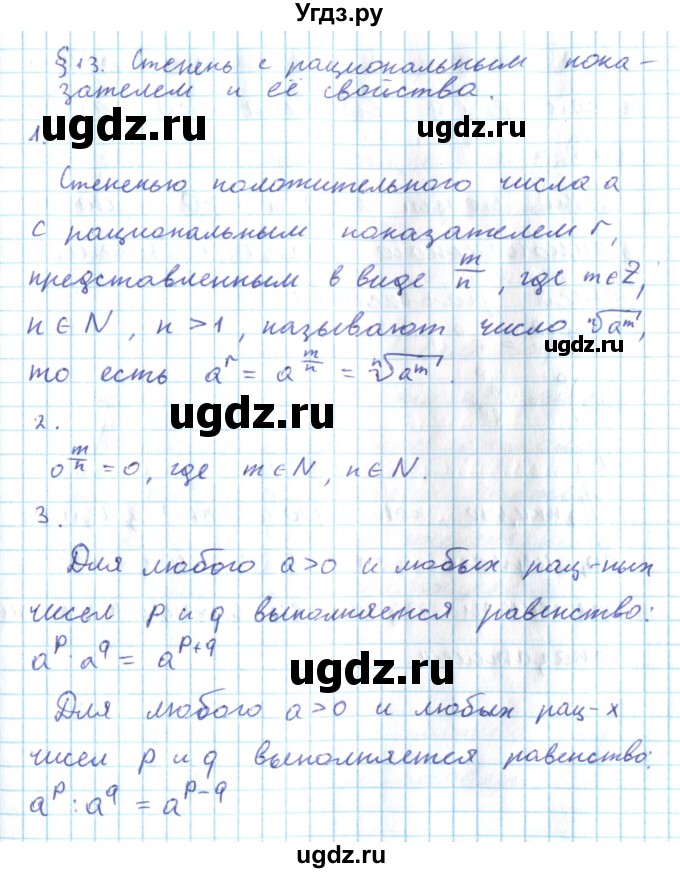 Угдз.ру
§13. Степень с рациональным пока-
зателем и её свойства.
ugdz.ru ugdz.ru
1.
Степенью положительного числа a
с рациональным показателем r,
представленным в виде m/n, где m∈Z,
n∈N, n>1, называют число ⁿ√aᵐ,
ugdz.ru
то есть aʳ = a^(m/n) = ⁿ√aᵐ.
ugdz.ru
2.
0^(m/n) = 0, где m∈N, n∈N.
3.
Для любого a>0 и любых рац-ных
чисел p и q выполняется равенство:
a^p · a^q = a^(p+q)
ugdz.ru
Для любого a>0 и любых рац-х
чисел p и q выполняется равенство:
a^p : a^q = a^(p-q)
ugdz.ru
ugdz.ru